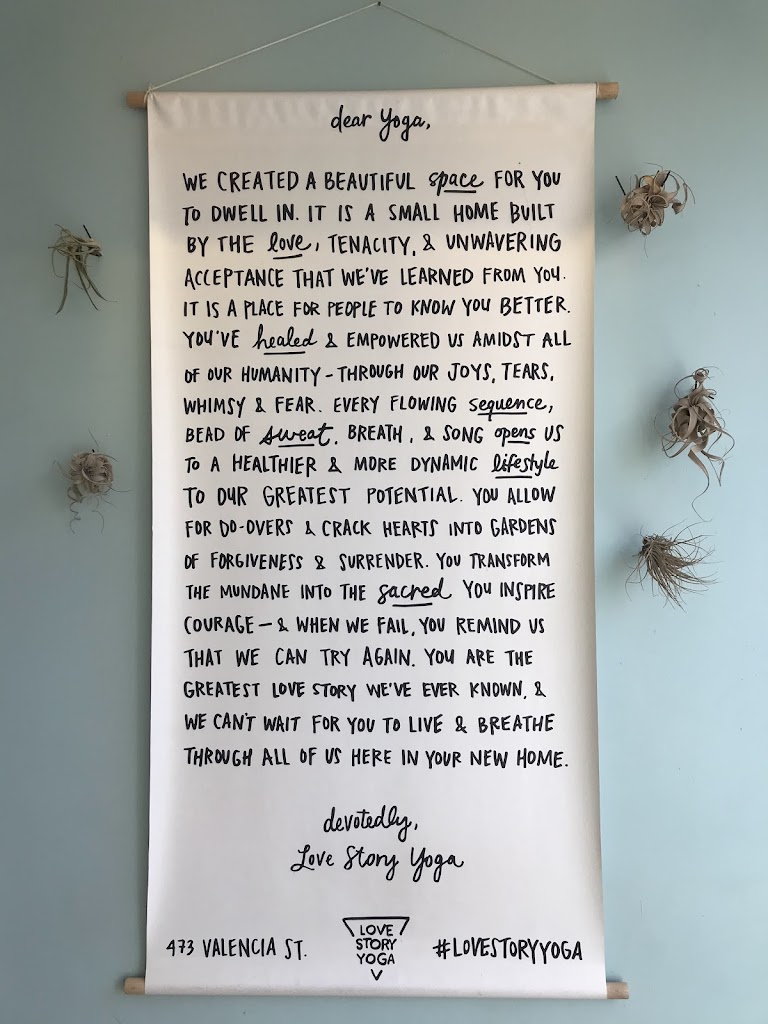 dear Yoga,
WE CREATED A BEAUTIFUL space FOR YOU
TO DWELL IN. IT IS A SMALL HOME BUILT
BY THE love, TENACITY, & UNWAVERING
ACCEPTANCE THAT WE'VE LEARNED FROM YOU.
IT IS A PLACE FOR PEOPLE TO KNOW YOU BETTER.
YOU'VE healed & EMPOWERED US AMIDST ALL
OF OUR HUMANITY - THROUGH OUR JOYS, TEARS,
WHIMSY & FEAR. EVERY FLOWING sequence,
BEAD OF sweat, BREATH, & SONG opens US
TO A HEALTHIER & MORE DYNAMIC lifestyle
TO OUR GREATEST POTENTIAL. YOU ALLOW
FOR DO-OVERS & CRACK HEARTS INTO GARDENS
OF FORGIVENESS & SURRENDER. YOU TRANSFORM
THE MUNDANE INTO THE sacred YOU INSPIRE
COURAGE — & WHEN WE FAIL, YOU REMIND US
THAT WE CAN TRY AGAIN. YOU ARE THE
GREATEST LOVE STORY WE'VE EVER KNOWN, &
WE CAN'T WAIT FOR YOU TO LIVE & BREATHE
THROUGH ALL OF US HERE IN YOUR NEW HOME.
devotedly,
Love Story Yoga
473 VALENCIA ST.
LOVE
STORY
YOGA
#LOVESTORYYOGA